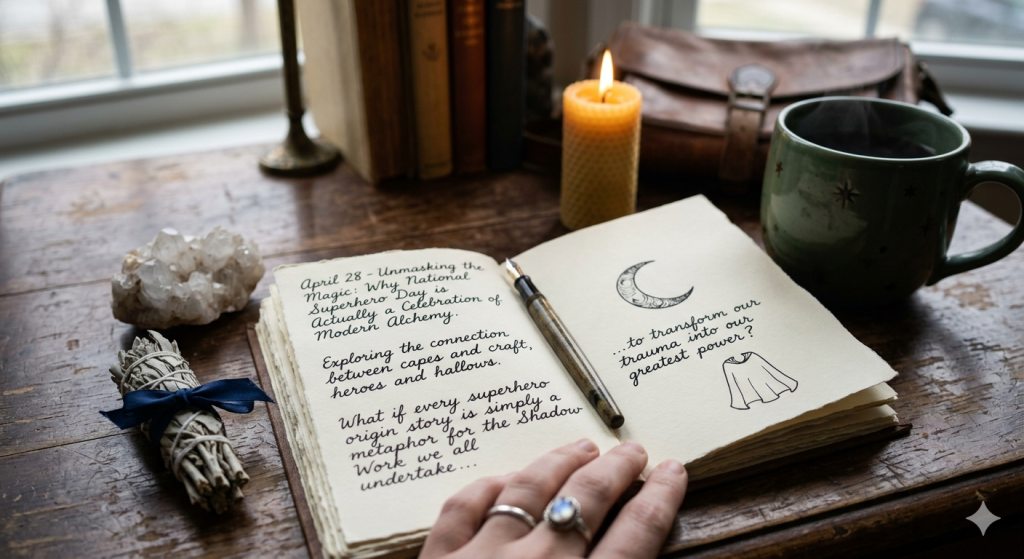 April 28 - Unmasking the
Magic: Why National
Superhero Day is
Actually a Celebration of
Modern Alchemy.
Exploring the connection
between capes and craft,
heroes and hallows.
What if every superhero
origin story is simply a
metaphor for the Shadow
Work we all
undertake...
...to transform our
trauma into our
greatest power?